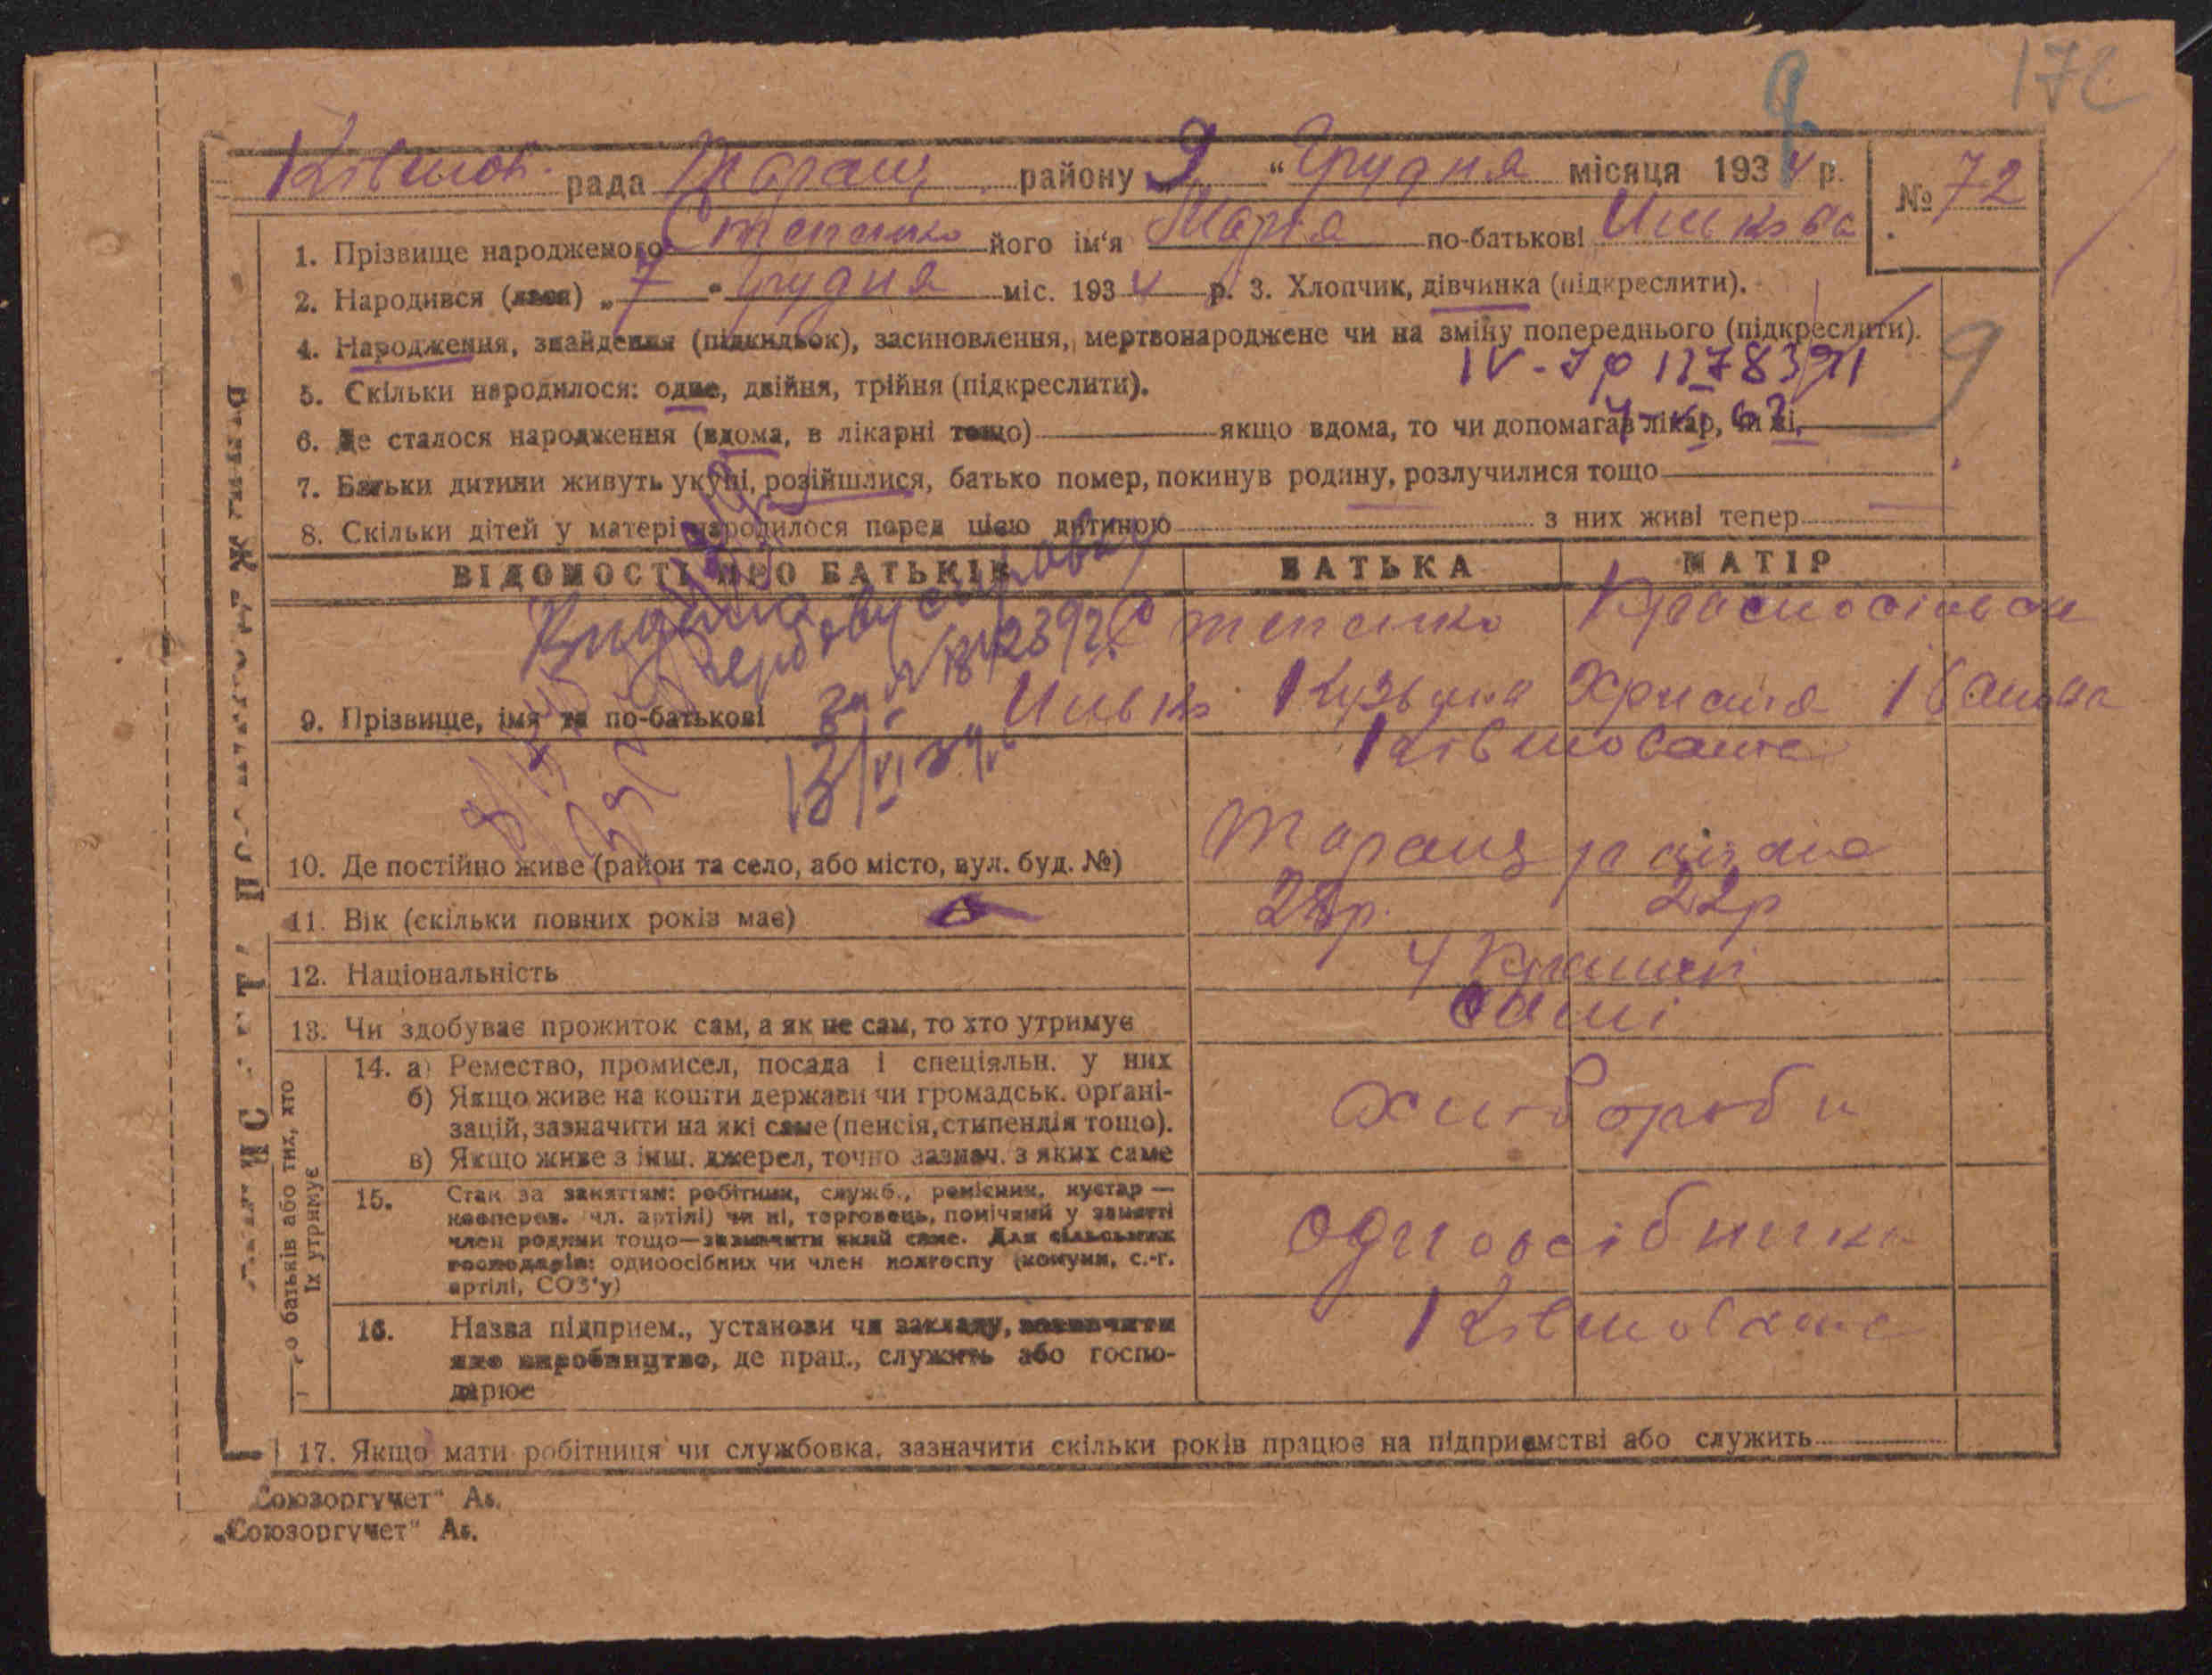 172
9
Ківшов. рада Таращ. району 9 „ Грудня місяця 1934 р.
№ 72
1. Прізвище народженого Степенко його ім'я Марія по-батькові Илькова
2. Народився (лася) „ 7 " Грудня міс. 1934 р. 3. Хлопчик, дівчинка (підкреслити).
4. Народження, знайдення (підкидьок), засиновлення, мертвонароджене чи на зміну попереднього (підкреслити).
5. Скільки народилося: одне, двійня, трійня (підкреслити).
6. Де сталося народження (вдома, в лікарні тощо) якщо вдома, то чи допомагав лікар, чи ні,
7. Батьки дитини живуть укупі, розійшлися, батько помер, покинув родину, розлучилися тощо
8. Скільки дітей у матері народилося перед цією дитиною з них живі тепер
ВІДОМОСТІ ПРО БАТЬКІВ БАТЬКА МАТІР
Степенко
9. Прізвище, імя та по-батькові Илько Кузьмич Христя Іванова
13/VI
Ківшовате
10. Де постійно живе (район та село, або місто, вул. буд. №) Таращ району
11. Вік (скільки повних років має) 22р
12. Національність Українці
13. Чи здобуває прожиток сам, а як не сам, то хто утримує самі
про батьків або тих, хто їх утримує
14. а) Ремество, промисел, посада і спеціяльн. у них
б) Якщо живе на кошти держави чи громадськ. органі-
зацій, зазначити на які саме (пенсія, стипендія тощо).
в) Якщо живе з інш. джерел, точно зазнач. з яких саме
хлібороби
15. Стан за заняттям: робітник, служб., ремісник, кустар —
кооперов. чл. артілі) чи ні, торговець, помічний у занятті
член родини тощо—зазначити який саме. Для сільських
господарів: одноосібник чи член колгоспу (комуни, с.-г.
артілі, СОЗ'у)
одноосібники
16. Назва підприєм., установи чи закладу, зазначити
яке виробництво, де прац., служить або госпо-
дарює
Ківшовате
17. Якщо мати робітниця чи службовка, зазначити скільки років працює на підприємстві або служить
„Союзоргучет" Аз.
„Союзоргучет" Аз.